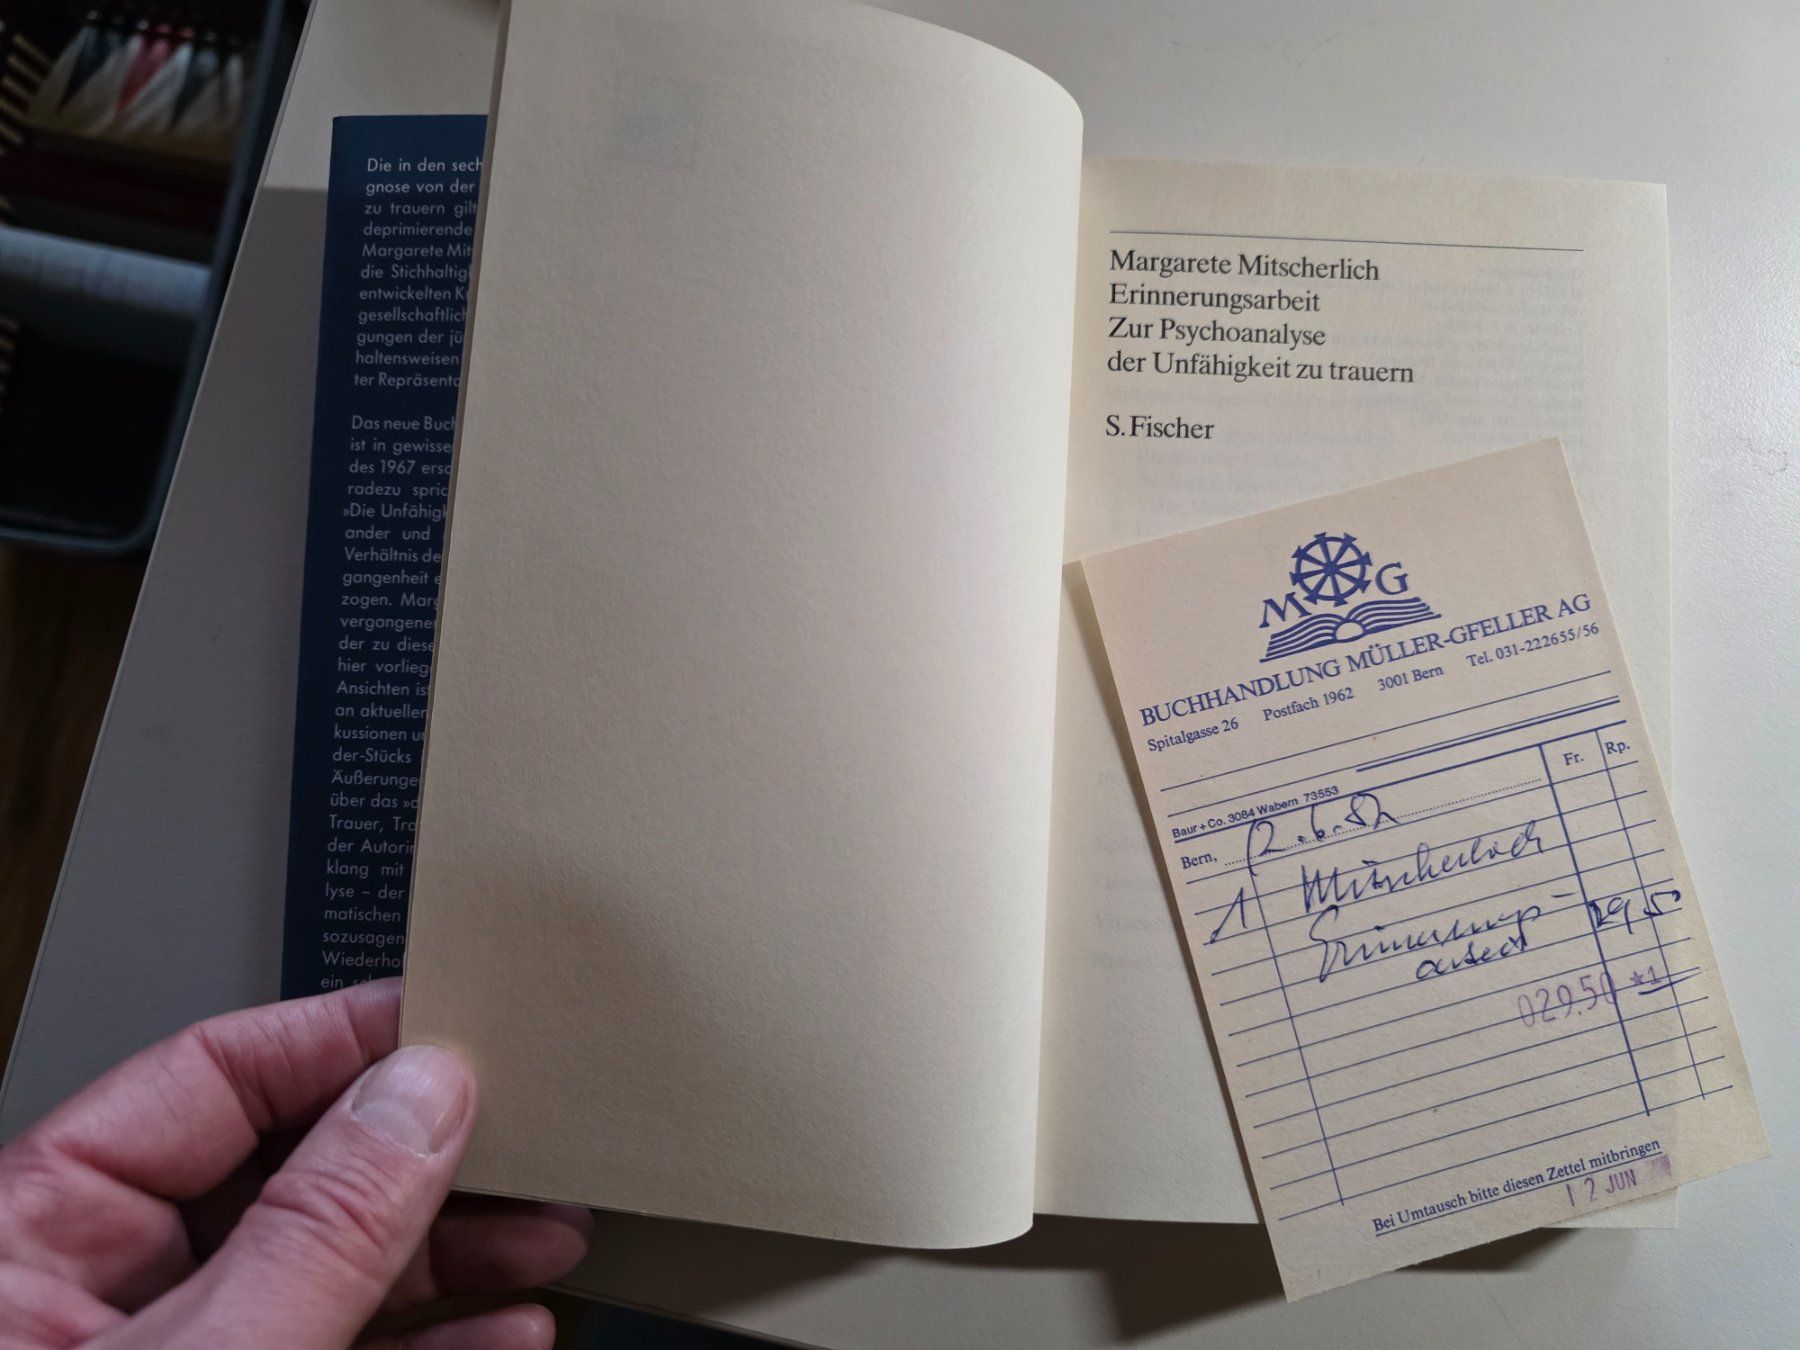 Die in den sech
gnose von der
zu trauern gilt
deprimierende
Margarete Mit
die Stichhaltig
entwickelten K
gesellschaftlich
gungen der jü
haltensweisen
ter Repräsenta
Das neue Buch
ist in gewisse
des 1967 ersc
radezu spric
»Die Unfähigk
ander und
Verhältnis de
gangenheit e
zogen. Marg
vergangener
der zu diese
hier vorlieg
Ansichten is
an aktuellen
kussionen u
der-Stücks
Äußerunge
über das »d
Trauer, Tra
der Autorin
klang mit
lyse – der
matischen
sozusagen
Wiederho
ein
Margarete Mitscherlich
Erinnerungsarbeit
Zur Psychoanalyse
der Unfähigkeit zu trauern
S. Fischer
M G
BUCHHANDLUNG MÜLLER-GFELLER AG
Spitalgasse 26 Postfach 1962 3001 Bern Tel. 031-222655/56
Fr. Rp.
Baur+Co. 3084 Wabern 73553
Bern, 12.6.87
1 Mitscherlich
Erinnerungs- 29 50
arbeit
029.50 *1
Bei Umtausch bitte diesen Zettel mitbringen
12 JUN